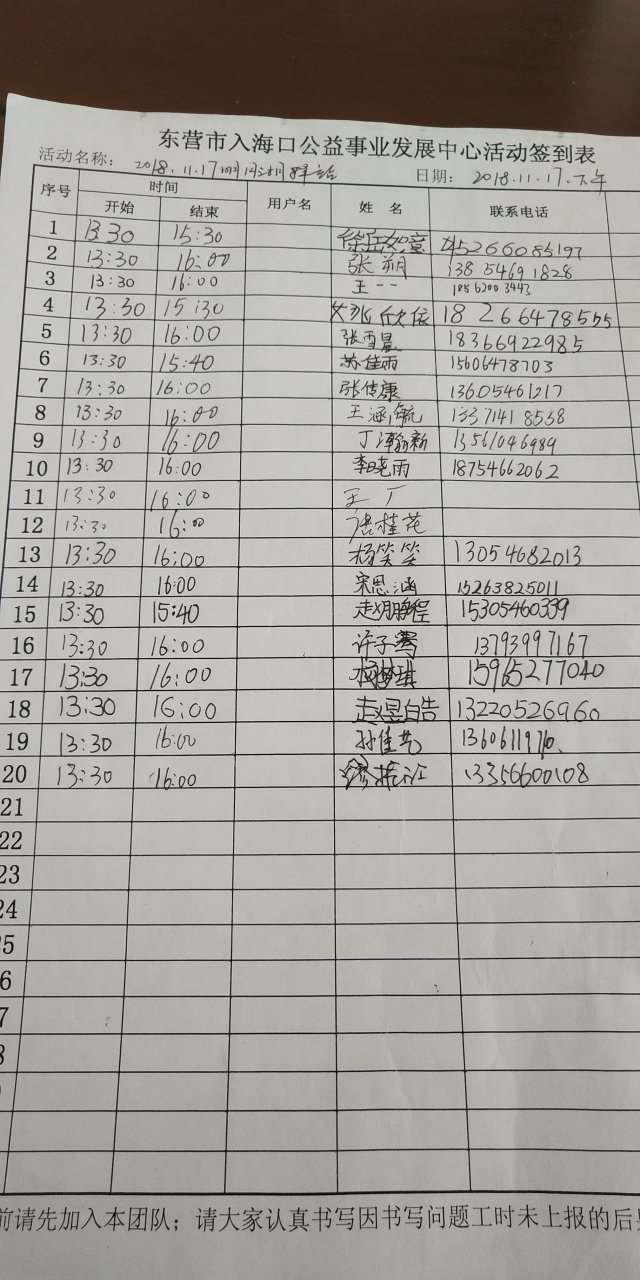 东营市入海口公益事业发展中心活动签到表
活动名称： 2018.11.17 日期： 2018.11.17.下午
序号 时间 用户名 姓 名 联系电话
开始 结束
1 13:30 15:30
2 13:30 16:00 张朔 138 5469 1828
3 13:30 16:00 王一一 185 6200 3443
4 13:30 15:30 欣依 18266478555
5 13:30 16:00 张雪晨 18366922985
6 13:30 15:40 苏佳雨 15606478703
7 13:30 16:00 张传康 13605461217
8 13:30 16:00 王涵毓 13371418558
9 13:30 16:00 丁瀚新 13561046989
10 13:30 16:00 李晓雨 18754662062
11 13:30 16:00
12 13:30 16:00 桂花
13 13:30 16:00 杨笑笑 13054682013
14 13:30 16:00 宋思涵 15263825011
15 13:30 15:40 赵鹏程 15305460339
16 13:30 16:00 许子骞 13793997167
17 13:30 16:00 15965277040
18 13:30 16:00 赵昱皓 13220526960
19 13:30 16:00 孙佳艺
20 13:30 16:00 13356600108
21
22
23
24
25
6
7
8
前请先加入本团队；请大家认真书写因书写问题工时未上报的后